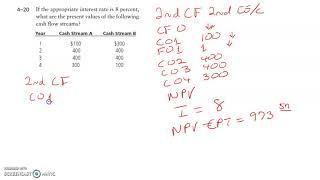 4–20 If the appropriate interest rate is 8 percent,
what are the present values of the following
cash flow streams?
Year Cash Stream A Cash Stream B
1 $100 $300
2 400 400
3 400 400
4 300 100
2nd CF
C01
2nd CF 2nd CE/C
CF0 ↓
C01 100 ↓
F01 1 ↓
C02 400
C03 400
C04 300
NPV
I = 8
NPV CPT = 973
RECORDED WITH
SCREENCAST-O-MATIC